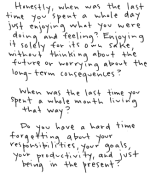 Honestly, when was the last
time you spent a whole day
just enjoying what you were
doing and feeling? Enjoying
it solely for its own sake,
without thinking about the
future or worrying about the
long-term consequences?
When was the last time you
spent a whole month living
that way?
Do you have a hard time
forgetting about your
responsibilities, your goals,
your productivity, and just
being in the present?